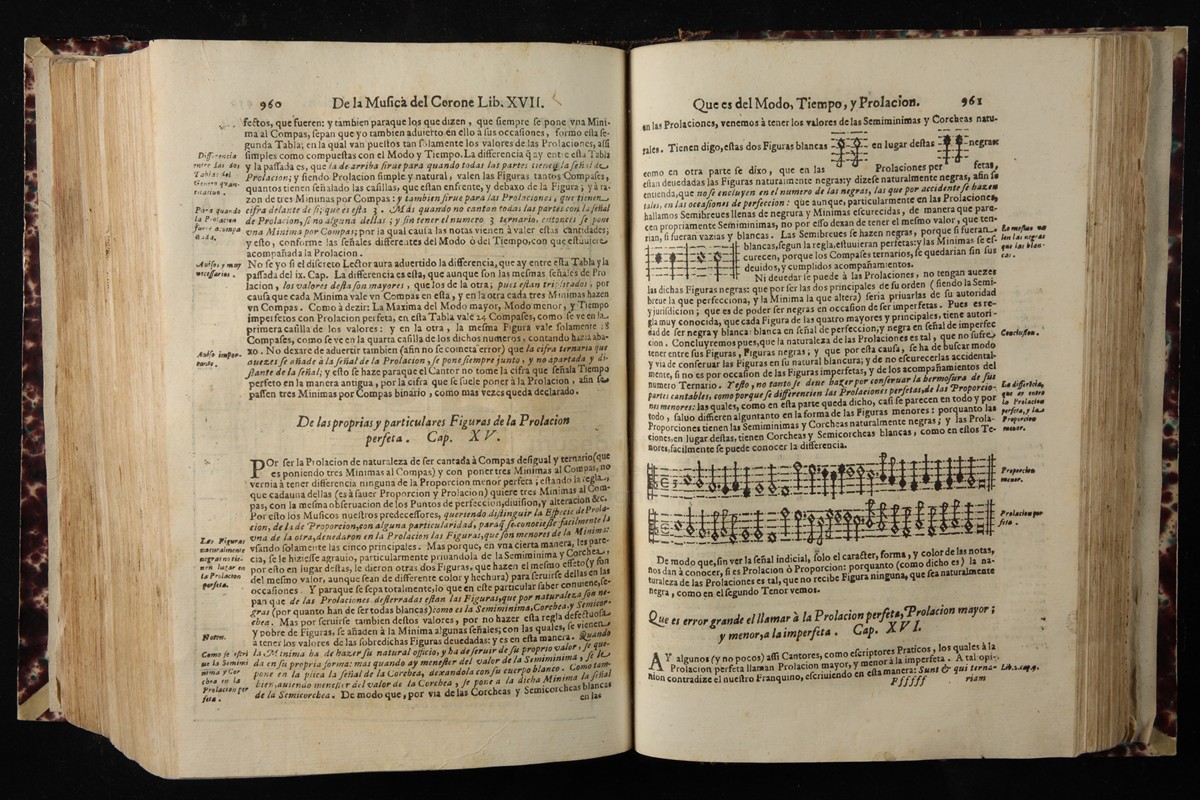 960 De la Musica del Cerone Lib. XVII.
fectos, que fueren: y tambien paraque los que dizen, que siempre se pone vna Mini-
ma al Compas, sepan que yo tambien aduierto en ello à sus occasiones, formo esta se-
gunda Tabla; en la qual van puestos tan solamente los valores de las Prolaciones, assi
simples como compuestas con el Modo y Tiempo. La differencia q̃ ay entre esta Tabla
y la passada es, que la de arriba sirue para quando todas las partes tienen la señal de
Prolacion; y siendo Prolacion simple y natural, valen las Figuras tantos Compases,
quantos tienen señalado las casillas, que estan enfrente, y debaxo de la Figura; y à ra-
zon de tres Minimas por Compas: y tambien sirue para las Prolaciones, que tienen
cifra delante de si; que es esta 3. Mas quando no cantan todas las partes con la señal
de Prolacion, si no alguna dellas; y sin tener el numero 3 ternario, entonces se pone
vna Minima por Compas; por la qual causa las notas vienen à valer estas cantidades;
y esto, conforme las señales differentes del Modo ò del Tiempo, con que estuuiere
acompañada la Prolacion.
No se yo si el discreto Lector aura aduertido la differencia, que ay entre esta Tabla y la
passada del ix. Cap. La differencia es esta, que aunque son las mesmas señales de Pro
lacion, los valores desta son mayores, que los de la otra; pues estan triplicados, por
causa que cada Minima vale vn Compas en esta, y en la otra cada tres Minimas hazen
vn Compas. Como à dezir: La Maxima del Modo mayor, Modo menor, y Tiempo
imperfetos con Prolacion perfeta, en esta Tabla vale 24 Compases, como se ve en la
primera casilla de los valores: y en la otra, la mesma Figura vale solamente 8
Compases, como se ve en la quarta casilla de los dichos numeros, contando hazia aba-
xo. No dexare de aduertir tambien (afin no se cometa error) que la cifra ternaria que
auezes se añade à la señal de la Prolacion, se pone siempre junto, y no apartada y di-
stante de la señal; y esto se haze paraque el Cantor no tome la cifra que señala Tiempo
perfeto en la manera antigua, por la cifra que se suele poner à la Prolacion, afin se
passen tres Minimas por Compas binario, como mas vezes queda declarado.
Differencia
entre las dos
Tablas del
Para quando
la Prolacion
fuere acompa
ñada.
Auiso, y muy
necessario.
Auiso impor-
tante.
De las proprias y particulares Figuras de la Prolacion
perfeta. Cap. XV.
POr ser la Prolacion de naturaleza de ser cantada à Compas desigual y ternario (que
es poniendo tres Minimas al Compas) y con poner tres Minimas al Compas, no
vernia à tener differencia ninguna de la Proporcion menor perfeta; estando la regla,
que cadauna dellas (es à sauer Proporcion y Prolacion) quiere tres Minimas al Com-
pas, con la mesma obseruacion de los Puntos de perfeccion, diuision, y alteracion &c.
Por esto los Musicos nuestros predecessores, queriendo distinguir la Especie de Prola-
cion, de la de Proporcion, con alguna particularidad, paraq̃ se conociesse facilmente la
vna de la otra, deuedaron en la Prolacion las Figuras, que son menores de la Minima:
vsando solamente las cinco principales. Mas porque, en vna cierta manera, les pare-
cia, se le hiziesse agrauio, particularmente priuandola de la Semiminima y Corchea,
por esto en lugar destas, le dieron otras dos Figuras, que hazen el mesmo effeto (y son
del mesmo valor, aunque sean de differente color y hechura) para seruirse dellas en las
occasiones. Y paraque se sepa totalmente, lo que en este particular saber conuiene, se-
pan que de las Prolaciones desterradas estan las Figuras, que por naturaleza son ne-
gras (por quanto han de ser todas blancas) como es la Semiminima, Corchea, y Semicor-
chea. Mas por seruirse tambien destos valores, por no hazer esta regla defectuosa
y pobre de Figuras, se añaden à la Minima algunas señales; con las quales, se vienen
à tener los valores de las sobredichas Figuras deuedadas: y es en esta manera. Quando
la Minima ha de hazer su natural officio, y ha de seruir de su proprio valor, se que-
da en su propria forma: mas quando ay menester del valor de la Semiminima, se le
pone en la pliea la señal de la Corchea, dexandola con su cuerpo blanco. Como tam-
bien, auiendo menester del valor de la Corchea, se pone à la dicha Minima la señal
de la Semicorchea. De modo que, por via de las Corcheas y Semicorcheas blancas
en las
Las Figuras
naturalmente
negras no tie-
nen lugar en
la Prolacion
perfeta.
Noten.
Como se escri
ue la Semimi
nima y Cor-
chea en la
Prolacion per
feta.
Que es del Modo, Tiempo, y Prolacion. 961
en las Prolaciones, venemos à tener los valores de las Semiminimas y Corcheas natu-
rales. Tienen digo, estas dos Figuras blancas en lugar destas negras:
como en otra parte se dixo, que en las Prolaciones perfetas,
estan deuedadas las Figuras naturalmente negras: y dizese naturalmente negras, afin se
entienda, que no se encluyen en el numero de las negras, las que por accidente se hazen
tales, en las occasiones de perfeccion: que aunque, particularmente en las Prolaciones,
hallamos Semibreues llenas de negrura y Minimas escurecidas, de manera que pare-
cen propriamente Semiminimas, no por esso dexan de tener el mesmo valor, que ten-
rian, si fueran vazias y blancas. Las Semibreues se hazen negras, porque si fueran
blancas, segun la regla, estuuieran perfetas: y las Minimas se es-
curecen, porque los Compases ternarios, se quedarian sin sus
deuidos, y cumplidos acompañamientos.
Ni deuedar se puede à las Prolaciones, no tengan auezes
las dichas Figuras negras: que por ser las dos principales de su orden (siendo la Semi-
breue la que perfecciona, y la Minima la que altera) seria priuarlas de su autoridad
y jurisdicion; que es de poder ser negras en occasion de ser imperfetas. Pues es re-
gla muy conocida, que cada Figura de las quatro mayores y principales, tiene autori-
dad de ser negra y blanca: blanca en señal de perfeccion, y negra en señal de imperfec
cion. Concluyremos pues, que la naturaleza de las Prolaciones es tal, que no sufre
tener entre sus Figuras, Figuras negras; y que por esta causa, se ha de buscar modo
y via de conseruar las Figuras en su natural blancura; y de no escurecerlas accidental-
mente, si no es por occasion de las Figuras imperfetas, y de los acompañamientos del
numero Ternario. Y esto, no tanto se deue hazer por conseruar la hermosura de sus
partes cantables, como porque se differencien las Prolaciones perfetas, de las Proporcio-
nes menores: las quales, como en esta parte queda dicho, casi se parecen en todo y por
todo, saluo differen alguntanto en la forma de las Figuras menores: porquanto las
Proporciones tienen las Semiminimas y Corcheas naturalmente negras; y las Prola-
ciones, en lugar destas, tienen Corcheas y Semicorcheas blancas, como en estos Te-
nores, facilmente se puede conocer la differencia.
Lo mesmo va-
len las negras
que las blan-
cas.
Conclusion.
La differécia,
que es entre
la Prolacion
perfeta, y la
Proporcion
menor.
Proporcion
menor.
Prolacion per
feta.
De modo que, sin ver la señal indicial, solo el caracter, forma, y color de las notas,
nos dan à conocer, si es Prolacion ò Proporcion: porquanto (como dicho es) la na-
turaleza de las Prolaciones es tal, que no recibe Figura ninguna, que sea naturalmente
negra, como en el segundo Tenor vemos.
Que es error grande el llamar à la Prolacion perfeta, Prolacion mayor;
y menor, a la imperfeta. Cap. XVI.
AY algunos (y no pocos) assi Cantores, como escriptores Praticos, los quales à la
Prolacion perfeta llaman Prolacion mayor, y menor à la imperfeta. A tal opi-
nion contradize el nuestro Franquino, escriuiendo en esta manera: Sunt & qui terna-
Pfffff riam